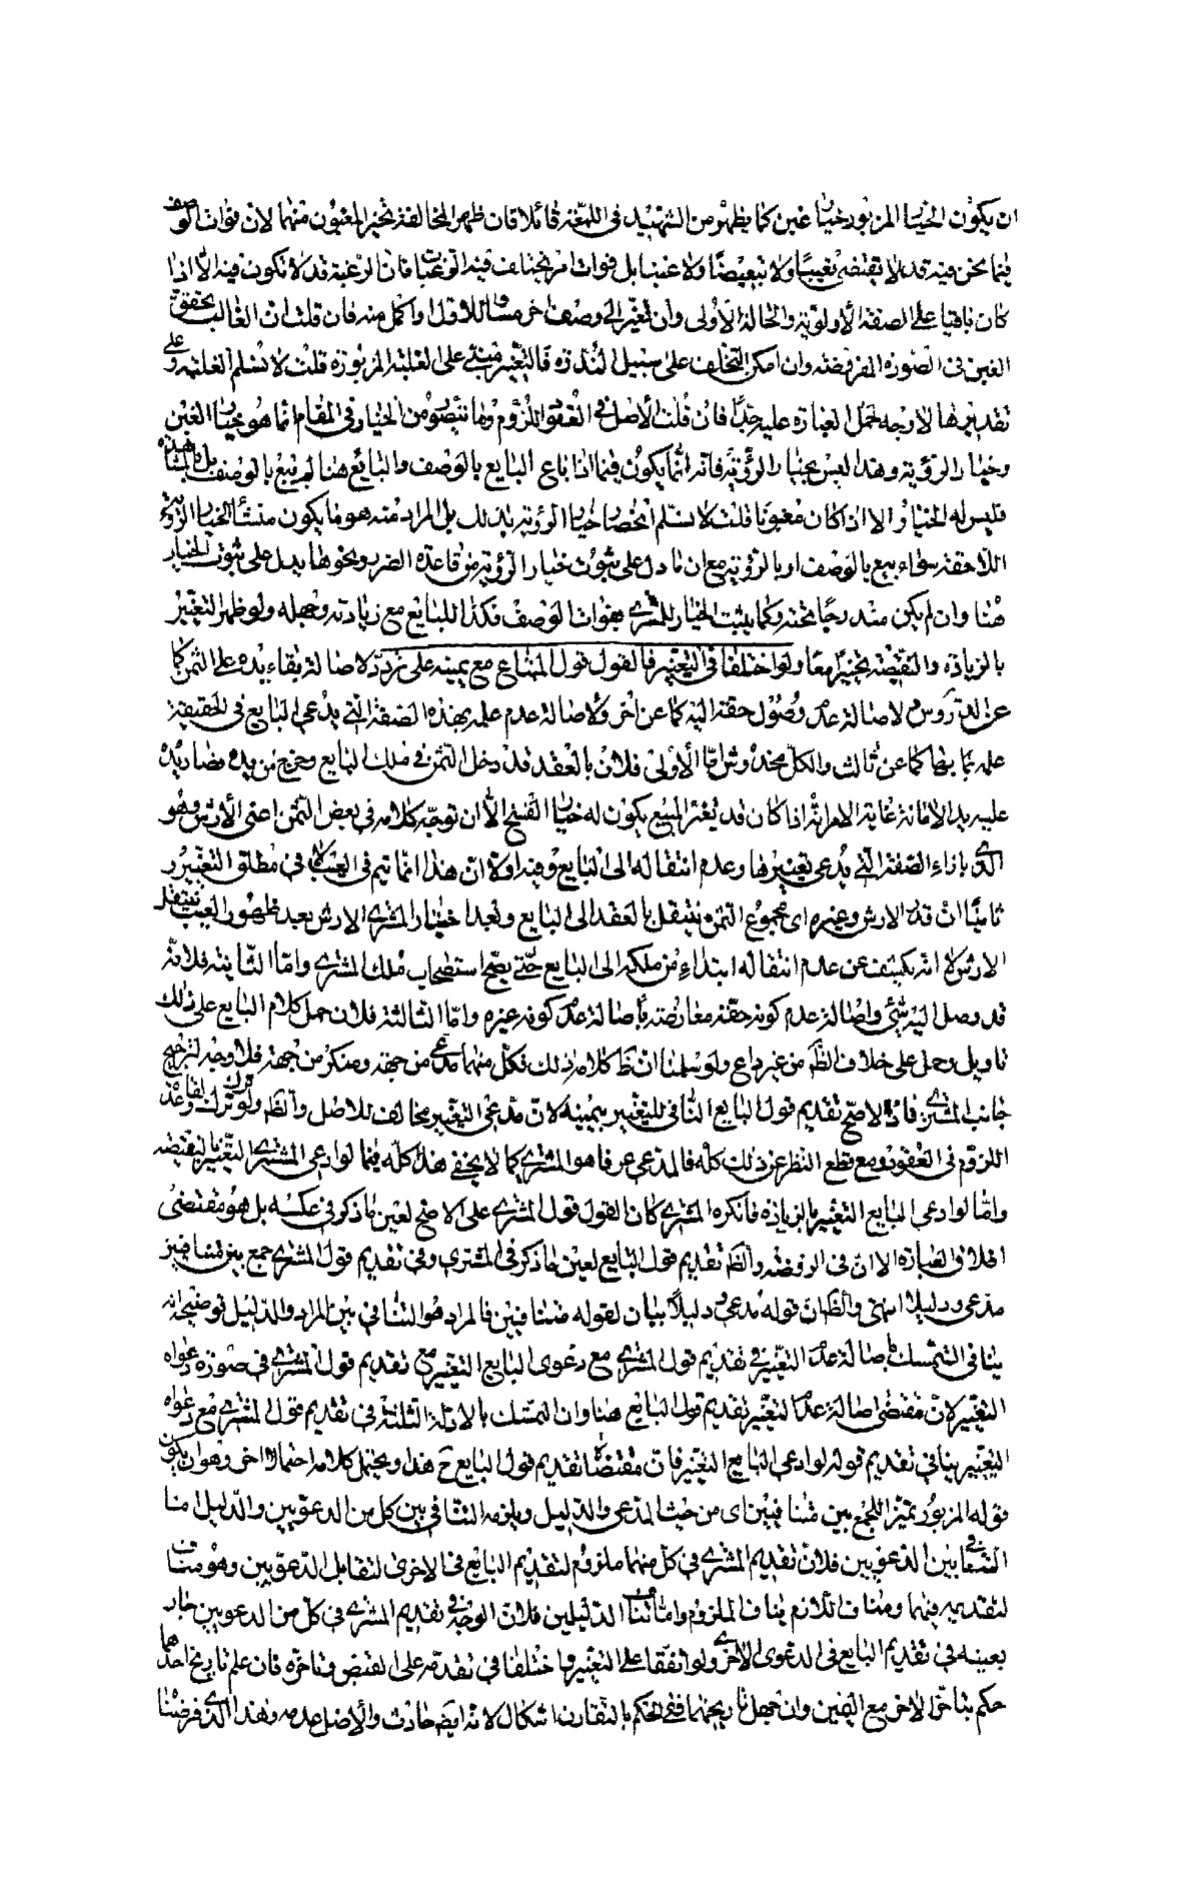 ان يكون الخيار المزبور خيار غبن كما يظهر من الشهيد في اللمعة قائلا فان ظهر المخالفة تخير المغبون منهما لان فوات الوصف
فيما نحن فيه قد لا يقتضى تعييبا ولا تبعيضا ولا غبنا بل فوات امر يختلف فيه الرغبات فان الرغبة قد لا تكون فيه الا اذا
كان باقيا على الصفة الاولوية والحالة الاولى وان تغير الى وصف اخر مساو للاول او اكمل منه فان قلت ان الغالب تحقق
الغبن في الصورة المفروضة وان امكن التخلف على سبيل الندرة فالتعبير مبنى على الغلبة المزبورة قلت لا نسلم الغلبة وعلى
تقديرها لا وجه لحمل العبارة عليه جدا فان قلت الاصل في العقود اللزوم وما يتصور من الخيار في المقام انما هو خيار الغبن
وخيار الرؤية وهذا ليس بخيار الرؤية فانه انما يكون فيما اذا باع البايع بالوصف والبايع هنا لم يبع بالوصف بل بالمشاهدة
فليس له الخيار الا اذا كان مغبونا قلت لا نسلم انحصار خيار الرؤية بذلك بل المراد منه هو ما يكون منشأ الخيار الرؤية
اللاحقة سواء بيع بالوصف او بالرؤية مع ان ما دل على ثبوت خيار الرؤية من قاعدة الضرر ونحوها يدل على ثبوت الخيار
هنا وان لم يكن مندرجا تحته وكما يثبت الخيار للمشترى بفوات الوصف فكذا للبايع مع زيادته وجهله ولو ظهر التغير
بالزيادة والنقيصة تخيرا معا ولو اختلفا في التغير فالقول قول المبتاع مع يمينه على تردد لاصالة بقاء يده على الثمن كما
عن الدروس لاصالة عدم وصول حقه اليه كما عن اخر ولاصالة عدم علمه بهذه الصفة التى يدعى البايع في الحقيقة
علمه بها كما عن ثالث والكل مخدوش اما الاولى فلان بالعقد قد دخل الثمن في ملك البايع وخرج من يده فصار يده
عليه يد الامانة غاية الامر انه اذا كان قد تغير المبيع يكون له خيار الفسخ الا ان توجه كلامه في بعض الثمن اعنى الارش وهو
الذى بازاء الصفة التى يدعى تغييرها وعدم انتقاله الى البايع وفيه اولا ان هذا انما يتم في العيب لا في مطلق التغير و
ثانيا ان قدر الارش وغيره اى مجموع الثمن ينتقل بالعقد الى البايع وبعد اختيار المشترى الارش بعد ظهور العيب ينتقل
الارش لا انه يكشف عن عدم انتقاله ابتداء من ملكه الى البايع حتى يصح استصحاب ملك المشترى واما الثانية فلانه
قد وصل اليه شئ واصالة عدم كونه حقه معارضة باصالة عدم كونه غيره واما الثالثة فلان حمل كلام البايع على ذلك
تاويل وحمل على خلاف الظ من غير داع ولو سلمنا ان ظ كلامه ذلك فكل منهما مدعى من جهة ومنكر من جهة فلا وجه لترجيح
جانب المشترى فاذا الاصح تقديم قول البايع النافى للتغيير بيمينه لان مدعى التغيير مخالف للاصل والظ ولو ترك ترك لقاعدة
اللزوم في العقود ومع قطع النظر عن ذلك كله فالمدعى عرفا هو المشترى كما لا يخفى هذا كله فيما لو ادعى المشترى التغير بالنقيصة
واما لو ادعى البايع التغيير بالزيادة فانكره المشترى كان القول قول المشترى على الاصح لعين ما ذكر في عكسه بل هو مقتضى
اطلاق العبارة الا ان في الروضة والظ تقديم قول البايع لعين ما ذكر في المشترى وفي تقديم قول المشترى جمع بين متنافيين
مدعى ودليلا انتهى والظ ان قوله مدعى ودليلا بيان لقوله متنافيين فالمراد هو التنافي بين المراد والدليل توضيحه انه
ينافى التمسك باصالة عدم التغيير في تقديم قول المشترى مع دعوى البايع التغيير مع تقديم قول المشترى في صورة دعواه
التغيير لان مقتضى اصالة عدم التغير تقديم قول البايع هنا وان التمسك بالادلة الثلثة في تقديم قول المشترى مع دعواه
التغيير ينافي تقديم قوله لو ادعى البايع التغيير فان مقتضاه تقديم قول البايع ح هذا ويحتمل كلامه احتمالا اخر وهو ان يكون
قوله المزبور تميزا للجمع بين متنافيين اى من حيث المدعى والدليل ويلزمه التنافى بين كل من الدعويين والدليل اما
التنافي بين الدعويين فلان تقديم المشترى في كل منهما ملزوم لتقديم البايع في الاخرى لتقابل الدعويين وهو مناف
لتقديمه فيهما ومناف للازم مناف للملزوم واما تنافى الدليلين فلان الوجه في تقديم المشترى في كل من الدعويين جار
بعينه في تقديم البايع في الدعوى الاخرى ولو اتفقا على التغيير واختلفا في تقدمه على القبض وتاخره فان علم تاريخ احدهما
حكم بتاخر الاخر مع اليمين وان جهل تاريخهما ففى الحكم بالتقارن اشكال لانه ايضا حادث والاصل عدمه وهذا الذى فرضنا